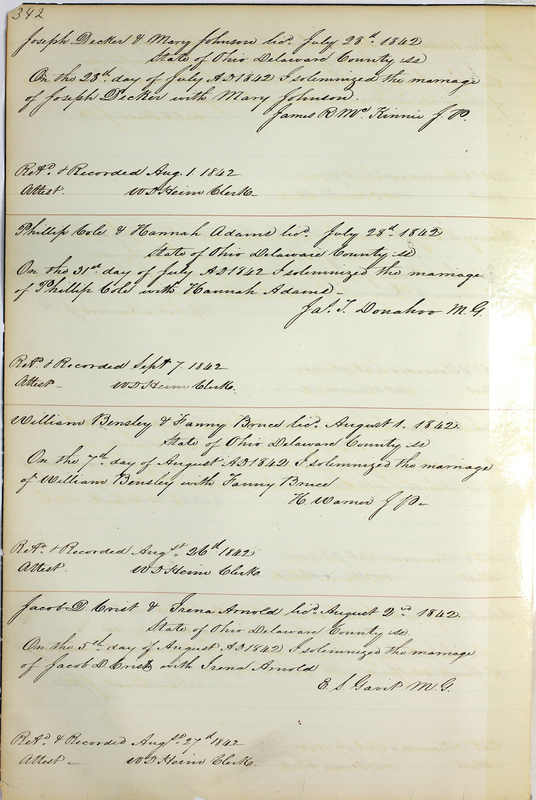 342
Joseph Decker & Mary Johnson lic. July 28th 1842
State of Ohio Delaware County ss
On the 28th day of July AD 1842 I solemnized the marriage
of Joseph Decker with Mary Johnson.
James R Mc Kinnie J P.
Retd & Recorded Aug. 1. 1842
Attest. W D Heim Clerk
Phillip Cole & Hannah Adams lic. July 28th 1842
State of Ohio Delaware County ss
On the 31st day of July AD 1842 I solemnized the marriage
of Phillip Cole with Hannah Adams
Jas. T. Donahoo M. G.
Retd & Recorded Sept 7. 1842
Attest W D Heim Clerk
William Bensley & Fanny Bruce lic. August 1. 1842.
State of Ohio Delaware County ss
On the 7th day of August AD 1842 I solemnized the marriage
of William Bensley with Fanny Bruce
H. Warner J P
Retd & Recorded Augst 26th 1842
Attest. W D Heim Clerk
Jacob D Crist & Irena Arnold lic. August 2nd 1842.
State of Ohio Delaware County ss
On the 5th day of August AD 1842 I solemnized the marriage
of Jacob D Crist with Irena Arnold
E S. Gavit M. G.
Retd & Recorded Augst 27th 1842
Attest W D Heim Clerk.